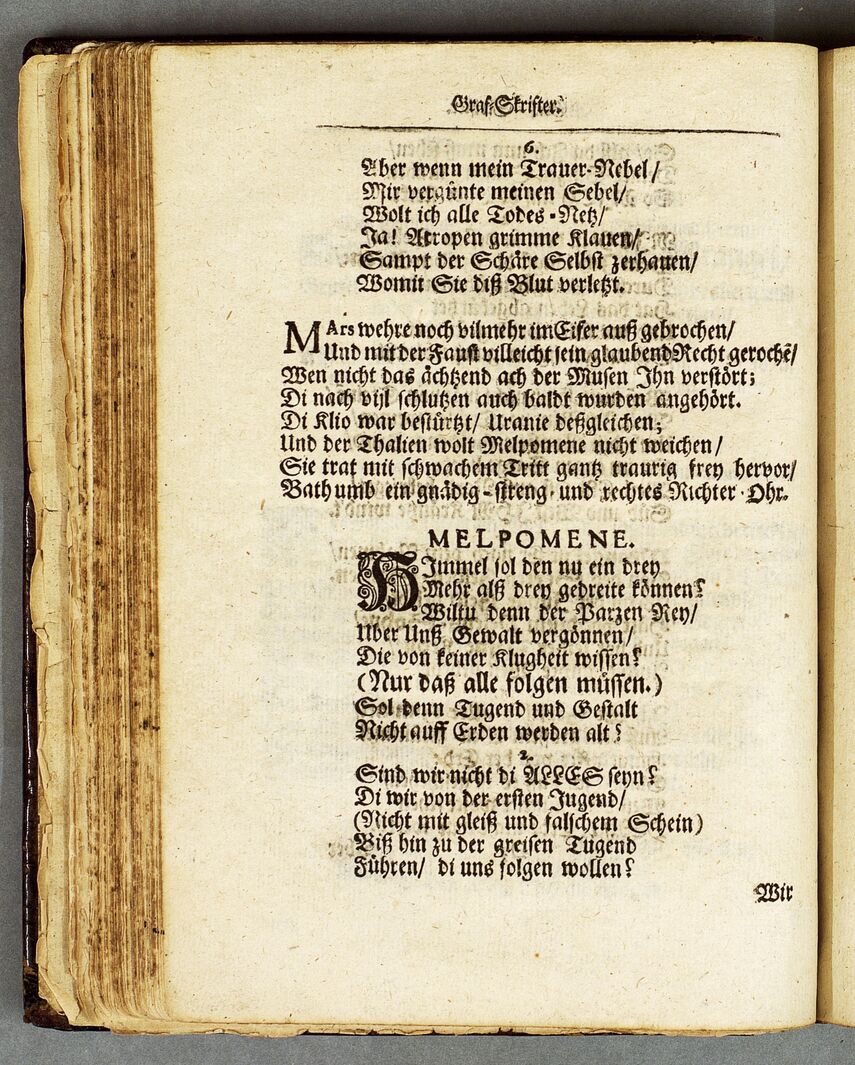 Graf-Skrifter.
6.
Aber wenn mein Trauer-Nebel/
Mir vergünte meinen Sebel/
Wolt ich alle Todes-Netz/
Ja! Atropen grimme Klauen/
Sampt der Schäre Selbst zerhauen/
Womit Sie diß Blut verletzt.
MArs wehre noch vilmehr im Eifer auß gebrochen/
Und mit der Faust villeicht sein glaubend Recht gerochẽ/
Wen nicht das ächtzend ach der Musen Ihn verstört;
Di nach vijl schlutzen auch baldt wurden angehört.
Di Klio war bestürtzt/ Uranie deßgleichen;
Und der Thalien wolt Melpomene nicht weichen/
Sie trat mit schwachem Tritt gantz traurig frey hervor/
Bath umb ein gnädig-streng- und rechtes Richter-Ohr.
MELPOMENE.
HImmel sol den nu ein drey
Mehr alß drey gedreite können?
Wiltu denn der Parzen Rey/
Uber Unß Gewalt vergönnen/
Die von keiner Klugheit wissen?
(Nur daß alle folgen müssen.)
Sol denn Tugend und Gestalt
Nicht auff Erden werden alt?
2.
Sind wir nicht di ALLES seyn?
Di wir von der ersten Jugend/
(Nicht mit gleiß und falschem Schein)
Biß hin zu der greisen Tugend
Führen/ di uns folgen wollen?
Wir